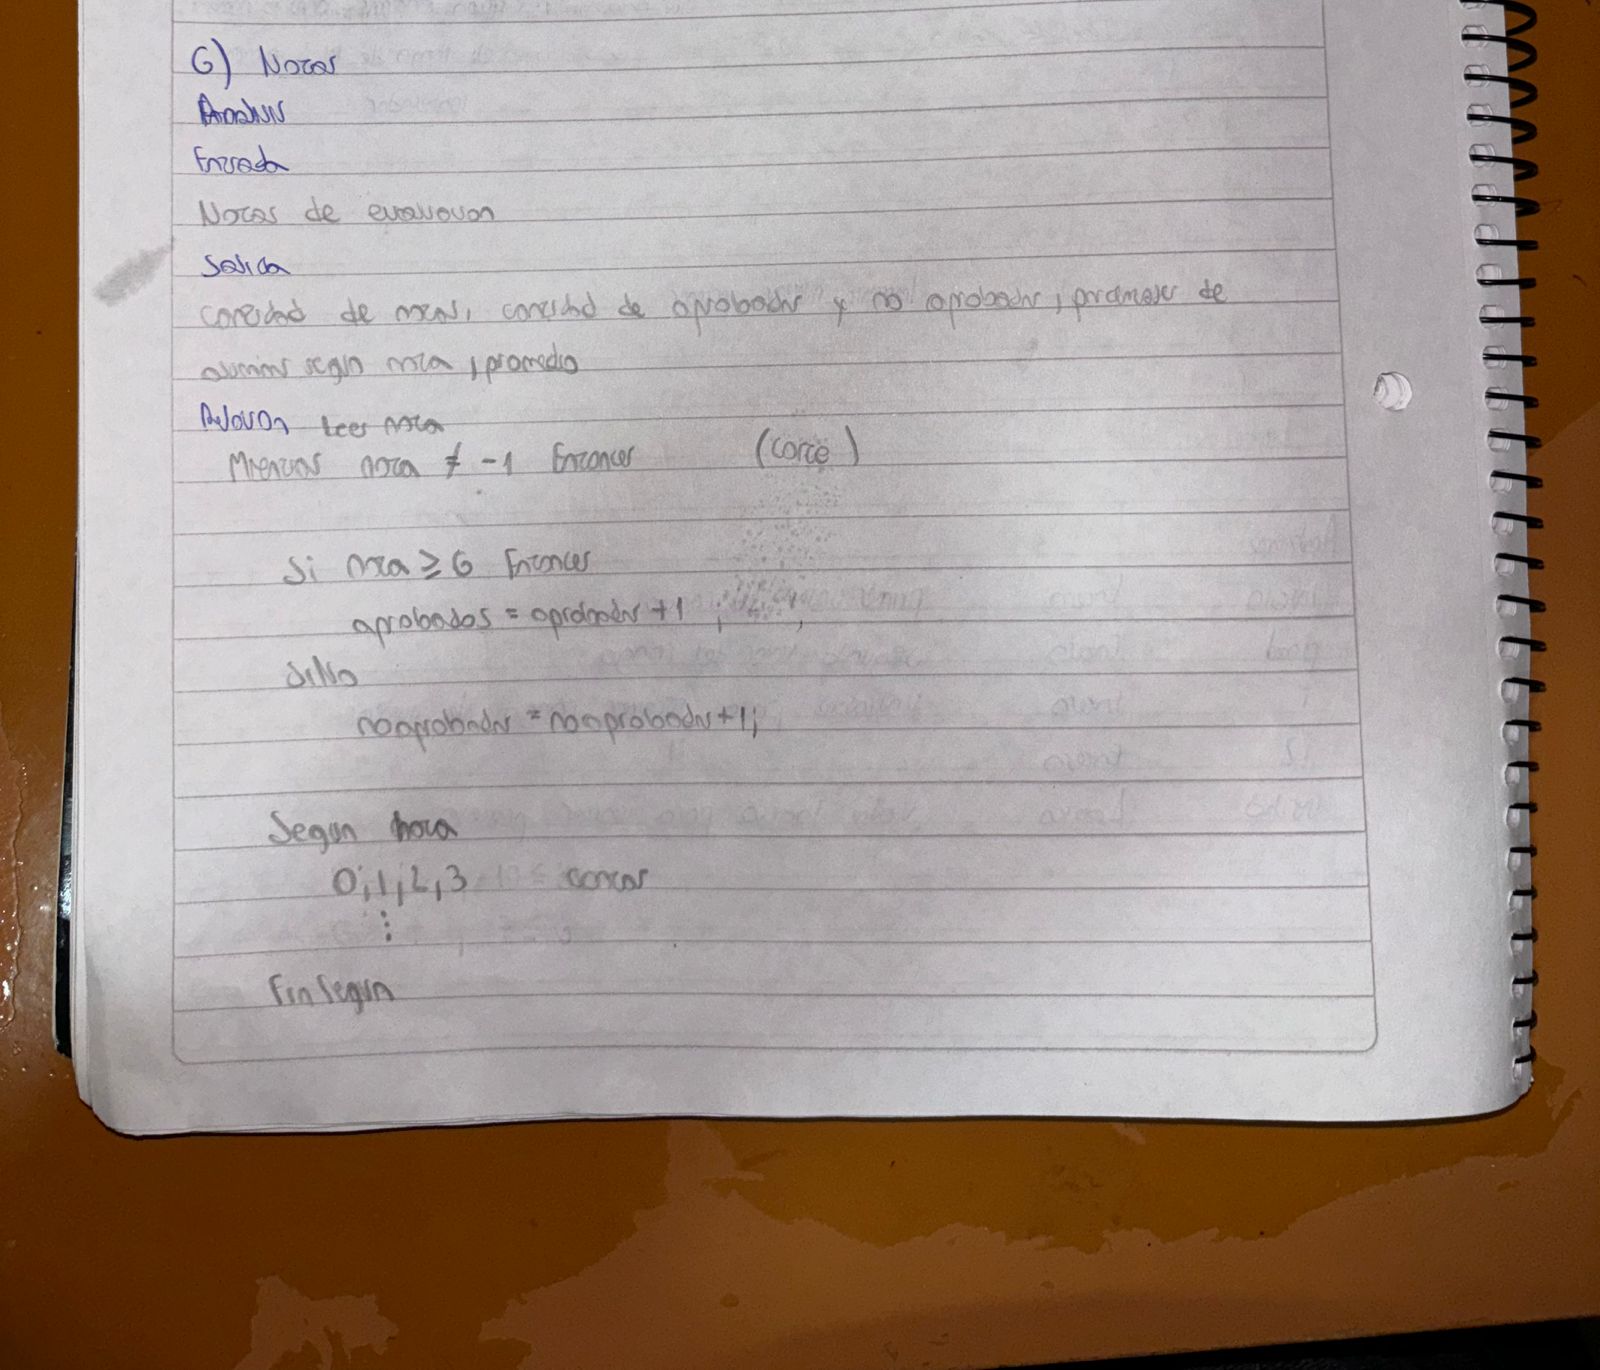 6) Notas
Analisis
Entrada
Notas de evaluacion
Salida
cantidad de notas, cantidad de aprobados y no aprobados, porcentajes de
alumnos segun nota, promedio
Relacion Leer nota
Mientras nota ≠ -1 Entonces (corte)
Si nota ≥ 6 Entonces
aprobados = aprobados +1;
SiNo
noaprobados = noaprobados+1;
Segun nota
0,1,2,3 contar
⋮
FinSegun